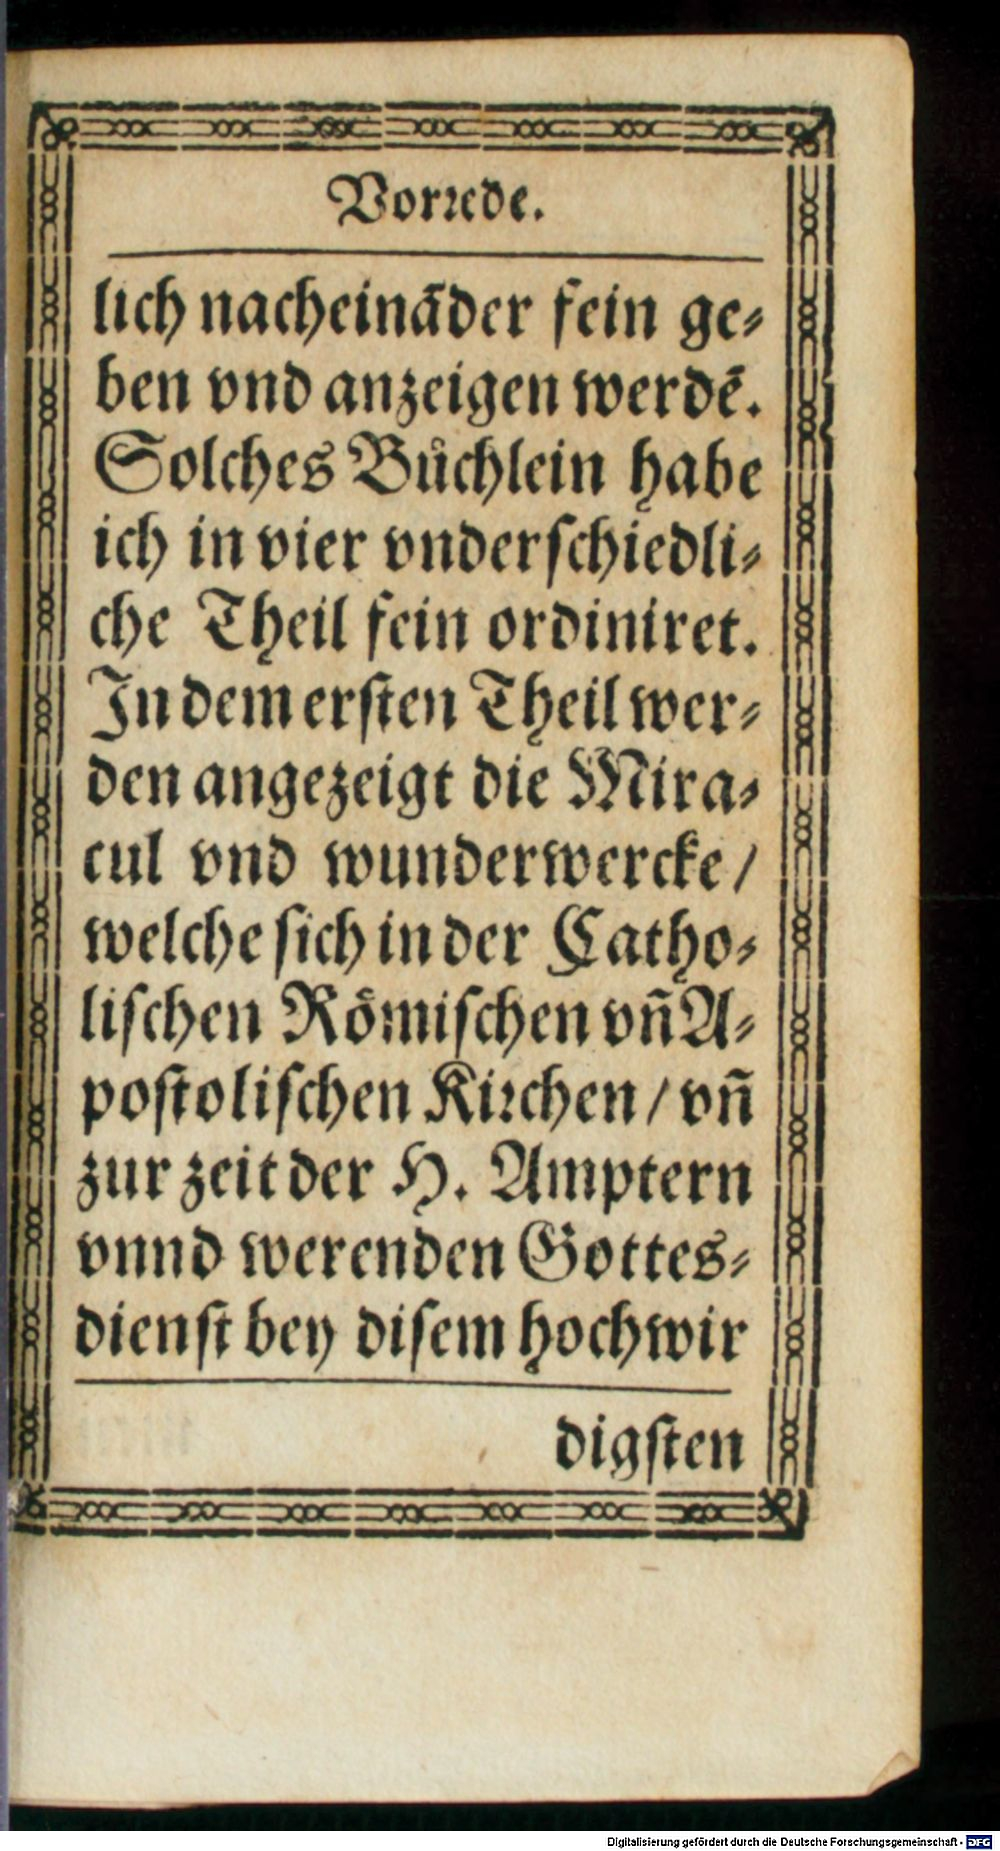 Vorꝛede.
lich nacheinãder fein ge⸗
ben vnd anzeigen werdẽ.
Solches Buͤchlein habe
ich in vier vnderſchiedli⸗
che Theil fein ordiniret.
In dem erſten Theil wer⸗
den angezeigt die Mira⸗
cul vnd wunderwercke /
welche ſich in der Catho⸗
liſchen Roͤmiſchen vñ A⸗
poſtoliſchen Kiꝛchen / vñ
zur zeit der H. Amptern
vnnd werenden Gottes⸗
dienſt bey diſem hochwir
digſten
Digitalisierung gefördert durch die Deutsche Forschungsgemeinschaft - DFG